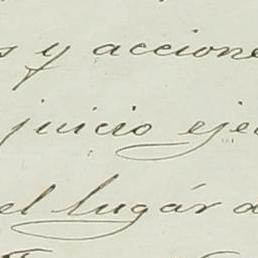 s y accione
juicio eje
el lugár d